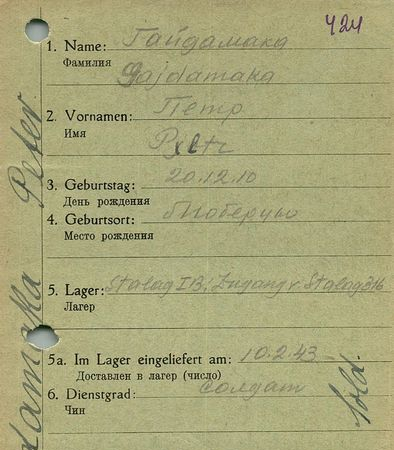 424
1. Name: Гайдамака
Фамилия
Gajdamaka
2. Vornamen: Петр
Имя
Pjetr
3. Geburtstag: 20.12.10
День рождения
4. Geburtsort:
Место рождения
5. Lager: Stalag IB; Zugang v. Stalag 316
Лагер
5a. Im Lager eingeliefert am: 10.2.43
Доставлен в лагер (число)
6. Dienstgrad: солдат
Чин
Peter